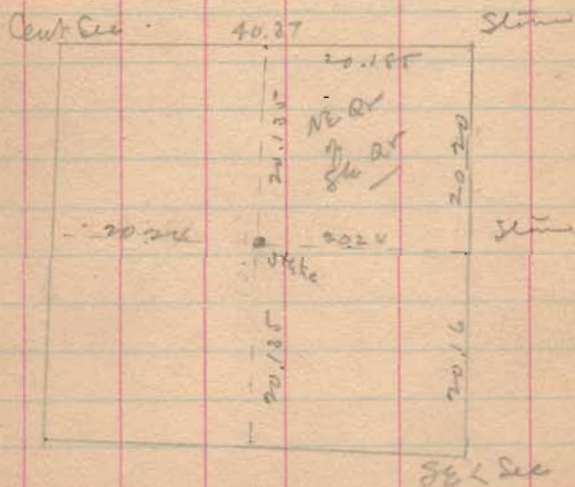 Cent Sec.
40.37
Stone
20.185
20.185
NE Qr
of
Qr
20.20
20.24
20.24
Stone
Stake
20.185
20.16
SE < Sec